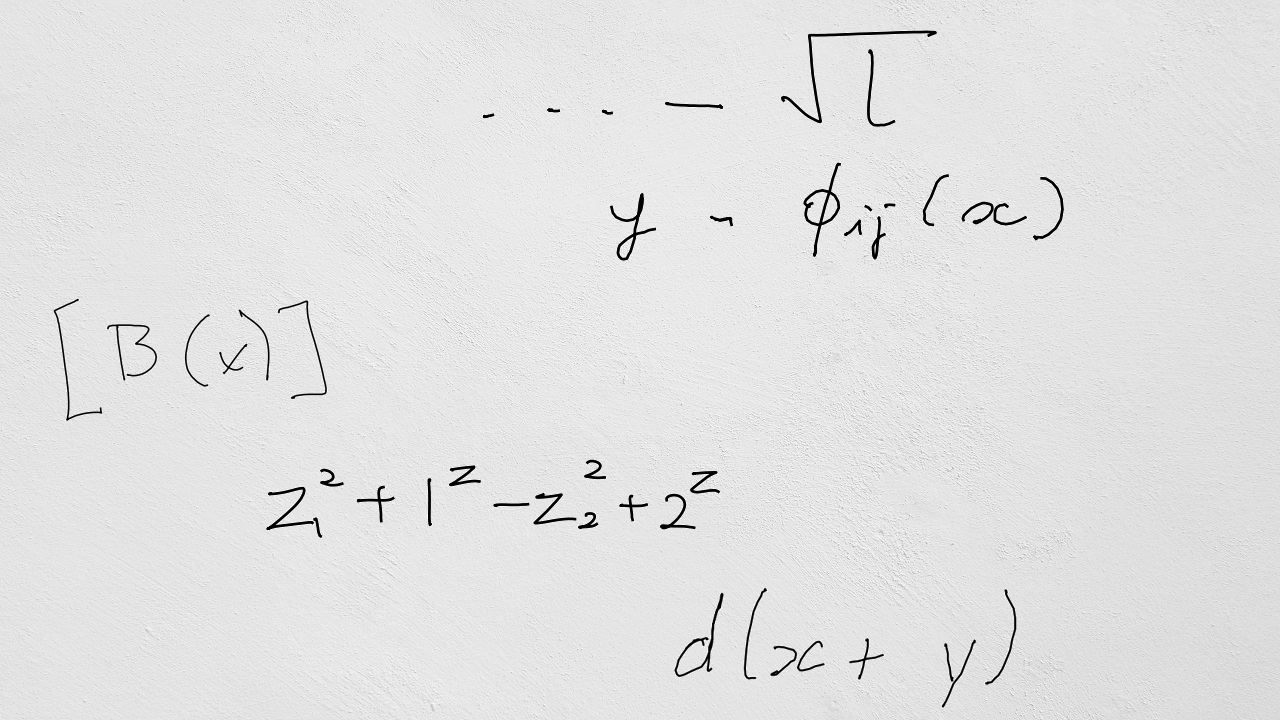 ... - √l
y - ϕ_ij(x)
[B(x)]
z₁² + 1^z - z₂² + 2^z
d(x + y)